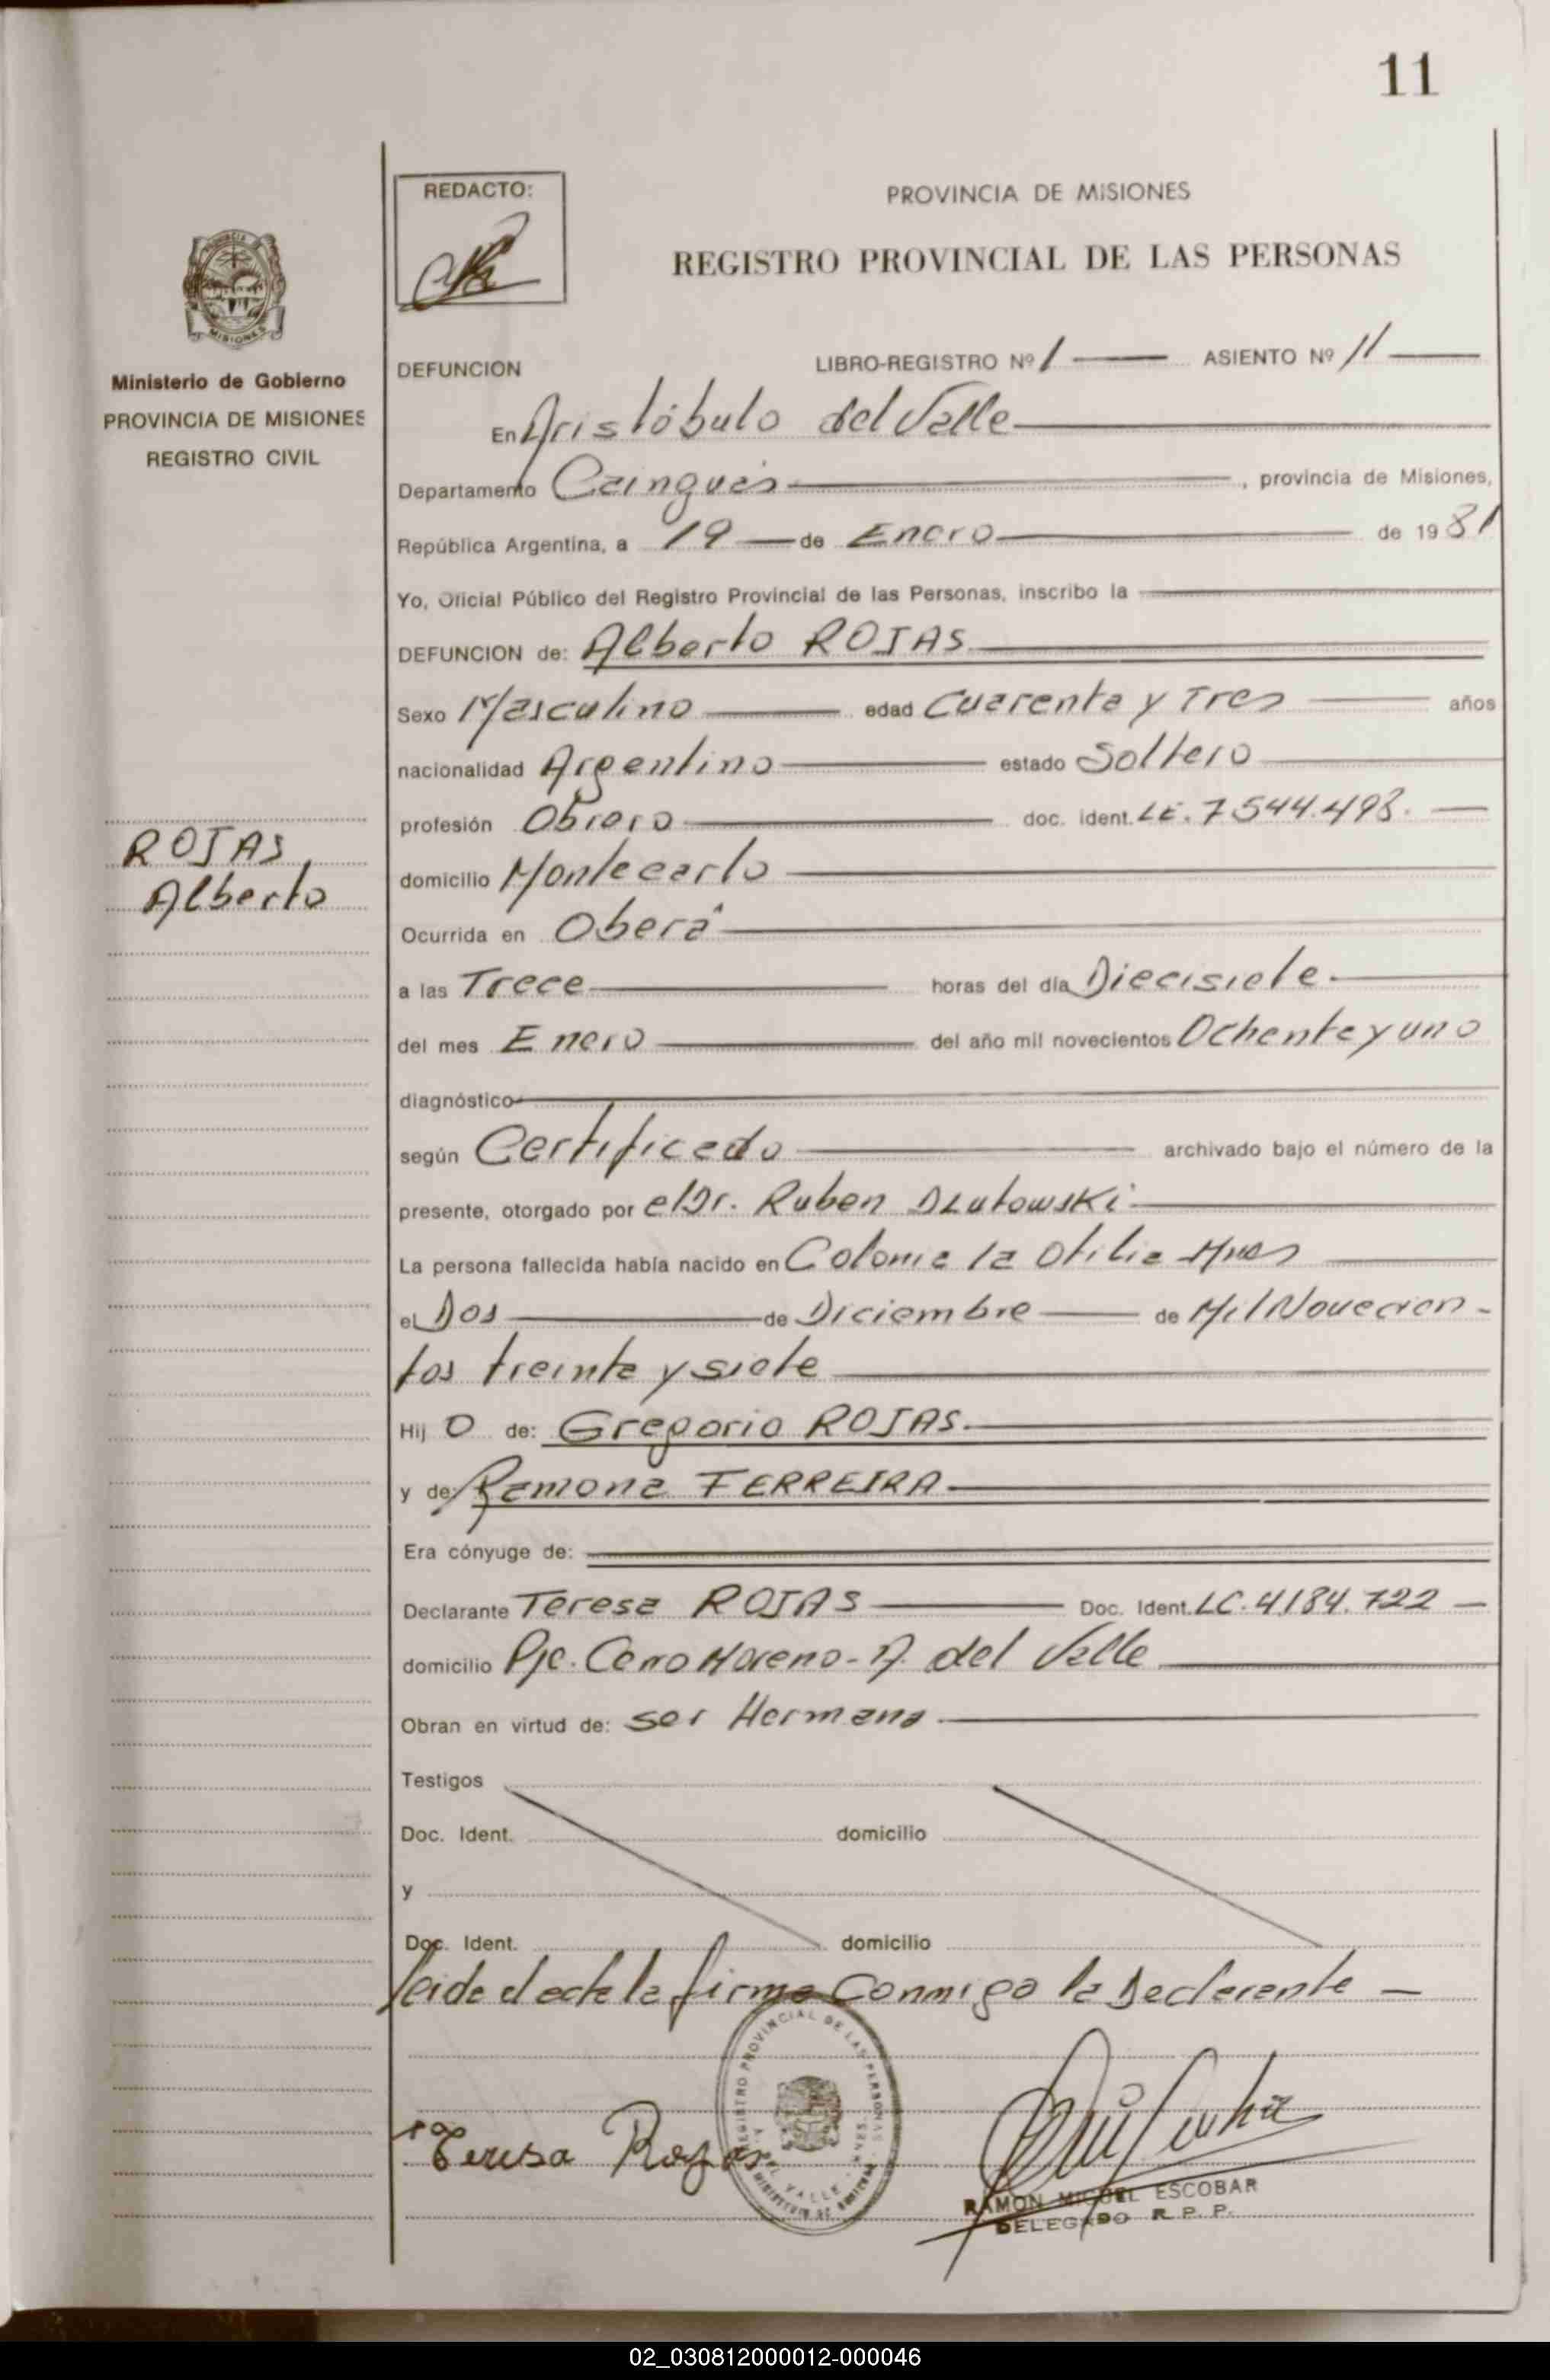 11
REDACTO:
PROVINCIA DE MISIONES
REGISTRO PROVINCIAL DE LAS PERSONAS
MISIONES
Ministerio de Gobierno
PROVINCIA DE MISIONES
REGISTRO CIVIL
DEFUNCION LIBRO-REGISTRO Nº 1 ASIENTO Nº 11
En Aristóbulo del Valle
Departamento Cainguás, provincia de Misiones,
República Argentina, a 19 de Enero de 1981
Yo, Oficial Público del Registro Provincial de las Personas, inscribo la
DEFUNCION de: Alberto ROJAS
Sexo Masculino edad Cuarenta y Tres años
nacionalidad Argentino estado Soltero
profesión Obrero doc. ident. LE. 7544.498.
ROJAS,
Alberto
domicilio Montecarlo
Ocurrida en Oberá
a las Trece horas del día Diecisiete
del mes Enero del año mil novecientos Ochenta y uno
diagnóstico
según Certificado archivado bajo el número de la
presente, otorgado por el Dr. Ruben DLutowski
La persona fallecida había nacido en Colonia la Otilia Mnes
el Dos de Diciembre de Mil Novecien-
tos treinta y siete
Hij o de: Gregorio ROJAS.
y de: Ramona FERREIRA
Era cónyuge de:
Declarante Teresa ROJAS Doc. Ident. LC. 4184.722
domicilio Pje. Cerro Moreno - A. del Valle
Obran en virtud de: ser Hermana
Testigos
Doc. Ident. domicilio
y
Doc. Ident. domicilio
leida el acta la firma Conmigo la Declarante
REGISTRO PROVINCIAL DE LAS PERSONAS
Teresa Rojas
RAMON MIGUEL ESCOBAR
DELEGADO R. P. P.
02_030812000012-000046